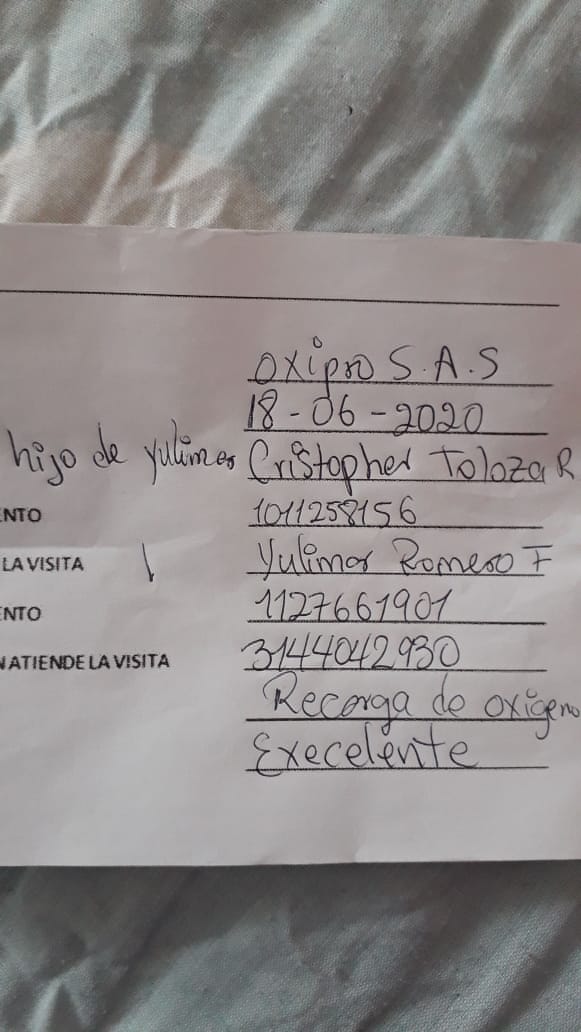 Oxipro S.A.S
18-06-2020
hijo de yulimar Cristopher Toloza R
ENTO 1011258156
LA VISITA Yulimar Romero F
ENTO 1127661901
N ATIENDE LA VISITA 3144042930
Recarga de oxigeno
Execelente